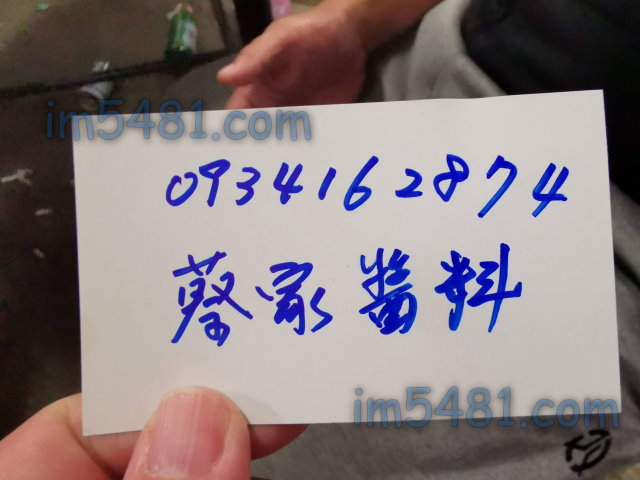 im5481.com
0934162874
蔡家醬料
im5481.com